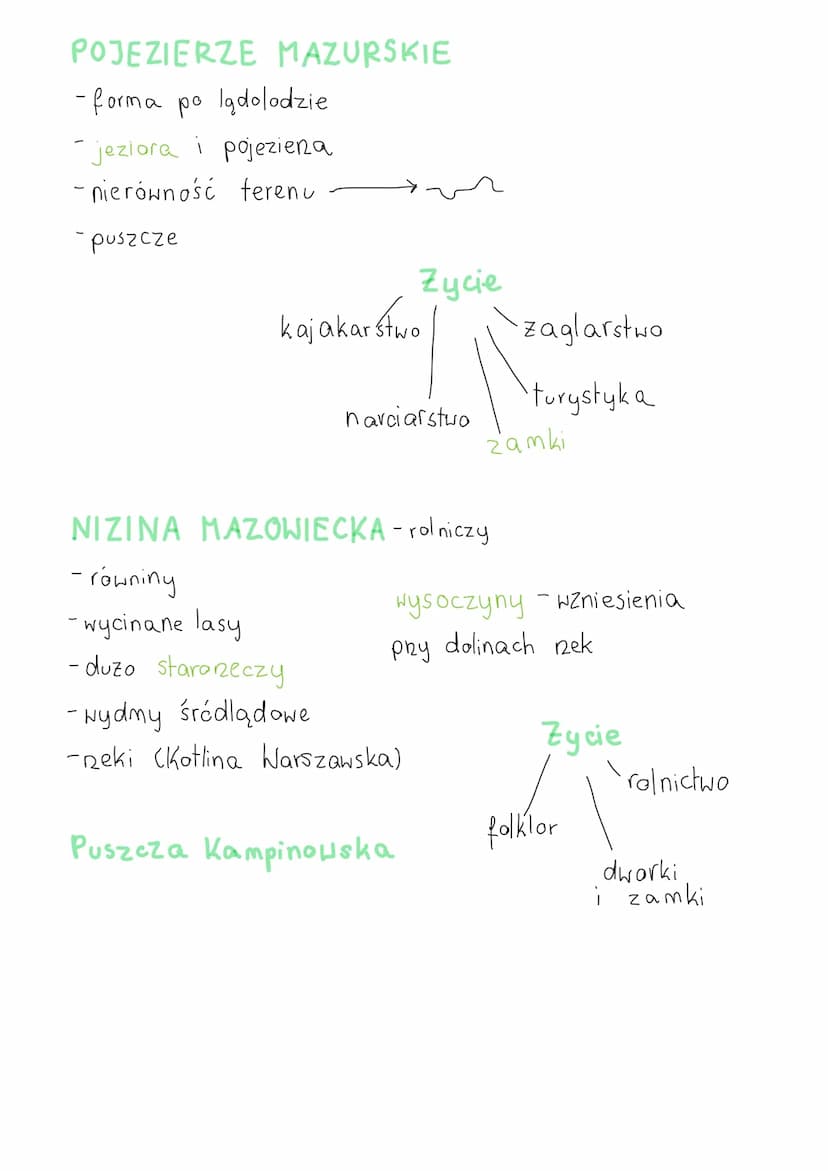 POJEZIERZE MAZURSKIE
- forma po lądolodzie
- jeziora i pojezierza
- nierówność terenu
- puszcze
Życie
kajakarstwo
żaglarstwo
turystyka
narciarstwo
zamki
NIZINA MAZOWIECKA - rolniczy
- równiny
- wycinane lasy
- dużo starorzeczy
- wydmy śródlądowe
- rzeki (Kotlina Warszawska)
wysoczyny - wzniesienia
przy dolinach rzek
Życie
rolnictwo
folklor
dworki
i zamki
Puszcza Kampinowska